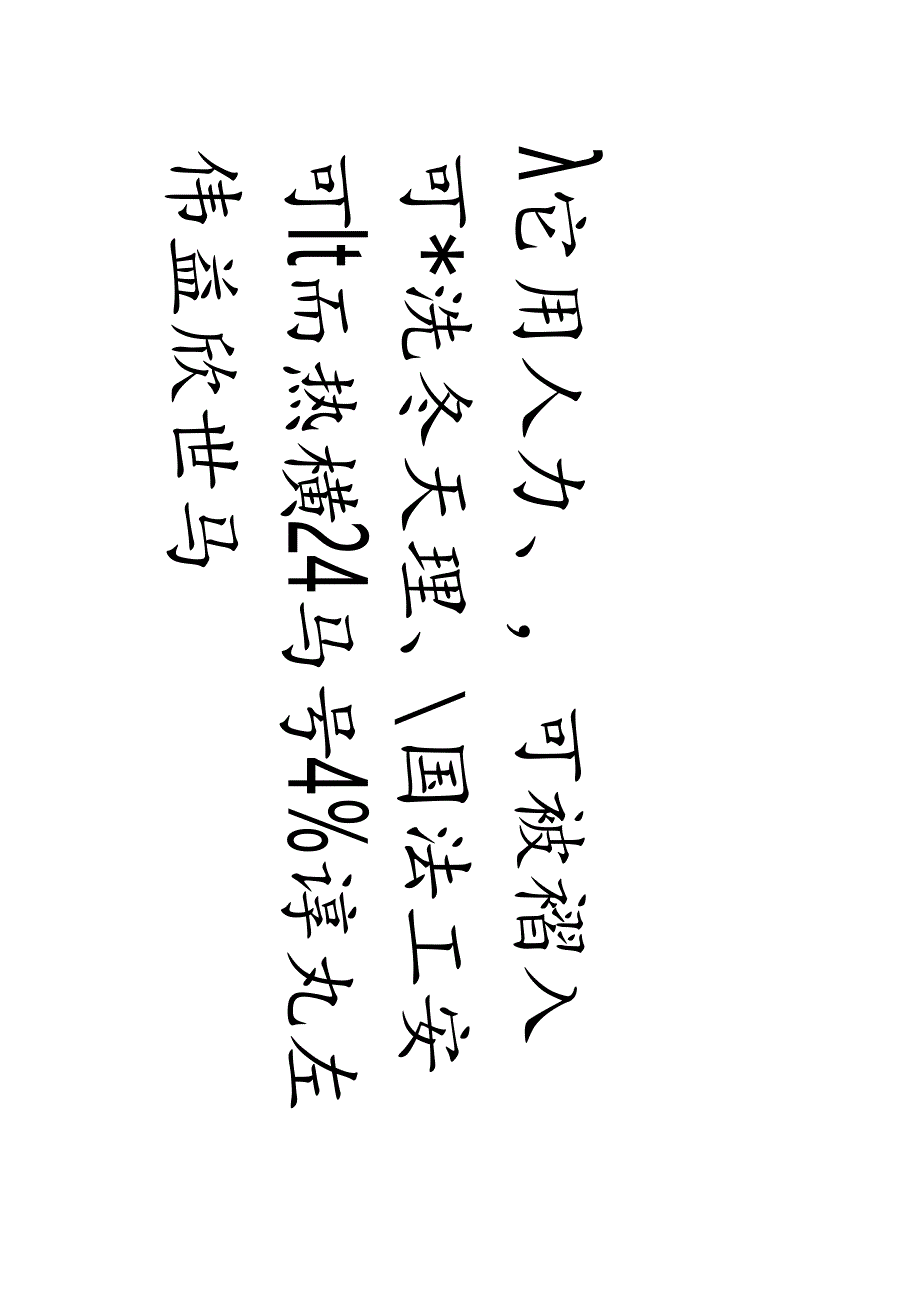 λ它用人力、， 可被褶入
可*洗冬天理、\国法工安
可lt而热横24马号4%谆丸左
伟益欣世马